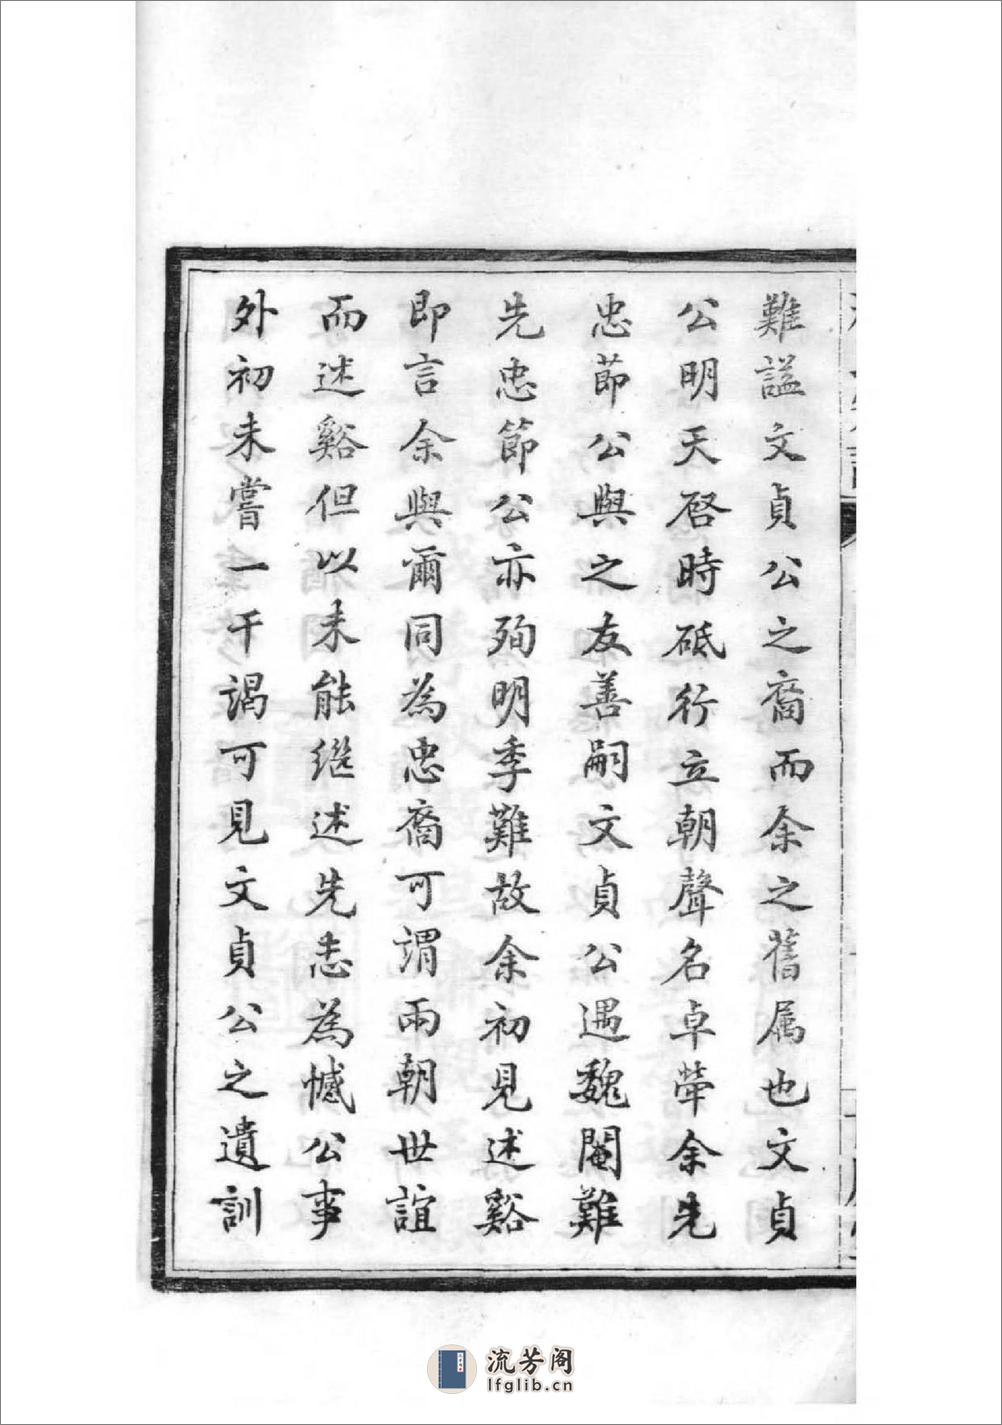 難謚文貞公之裔而余之舊属也文貞
公明天啓時砥行立朝聲名卓犖余先
忠莭公與之友善嗣文貞公遇魏閹難
先忠節公亦殉明季難故余初見述谿
即言余與爾同為忠裔可謂兩朝世誼
而述谿但以未能继述先志為憾公事
外初未嘗一干謁可見文貞公之遺訓
流芳阁
lfglib.cn